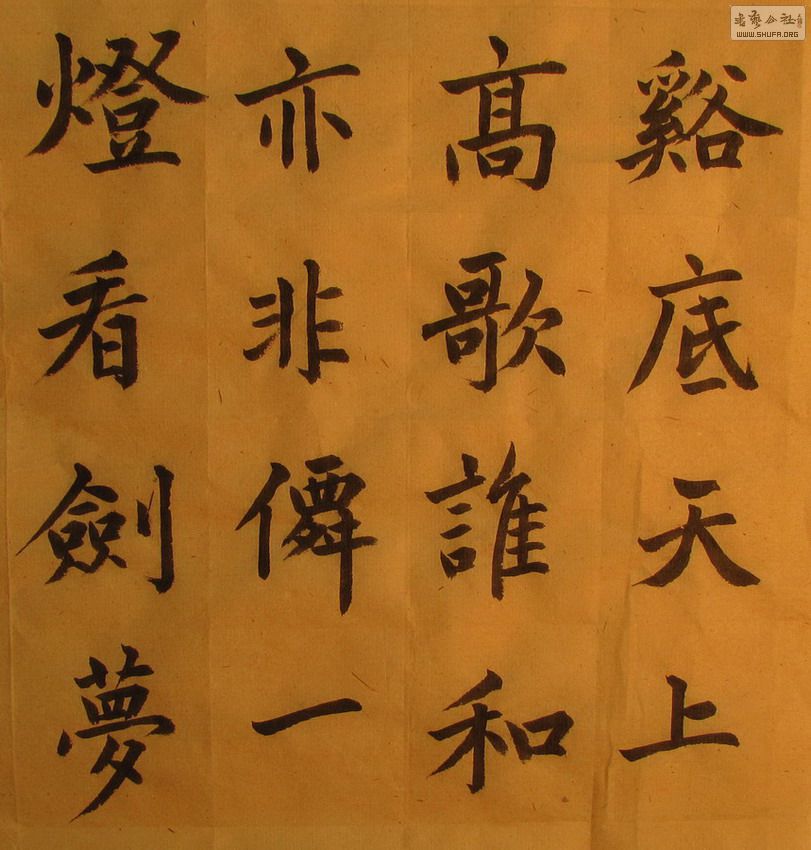 谿底天上
髙歌誰和
亦非一
燈看劍夢
書藝公社
WWW.SHUFA.ORG